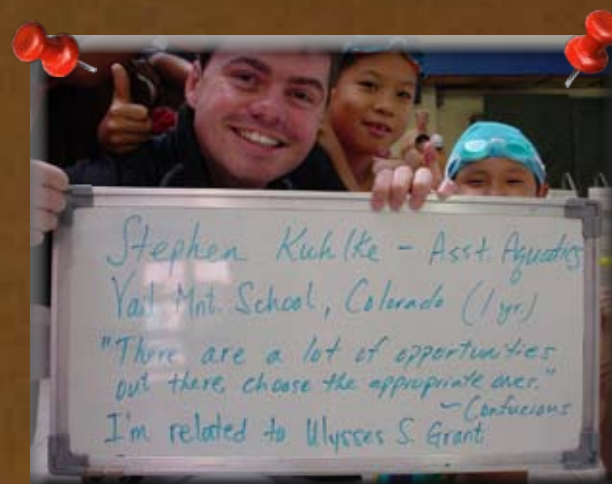 Stephen Kuhlke - Asst. Aquatics
Vail Mnt. School, Colorado (1 yr.)
"There are a lot of opportunities
out there, choose the appropriate ones."
~ Confucious
I'm related to Ulysses S. Grant